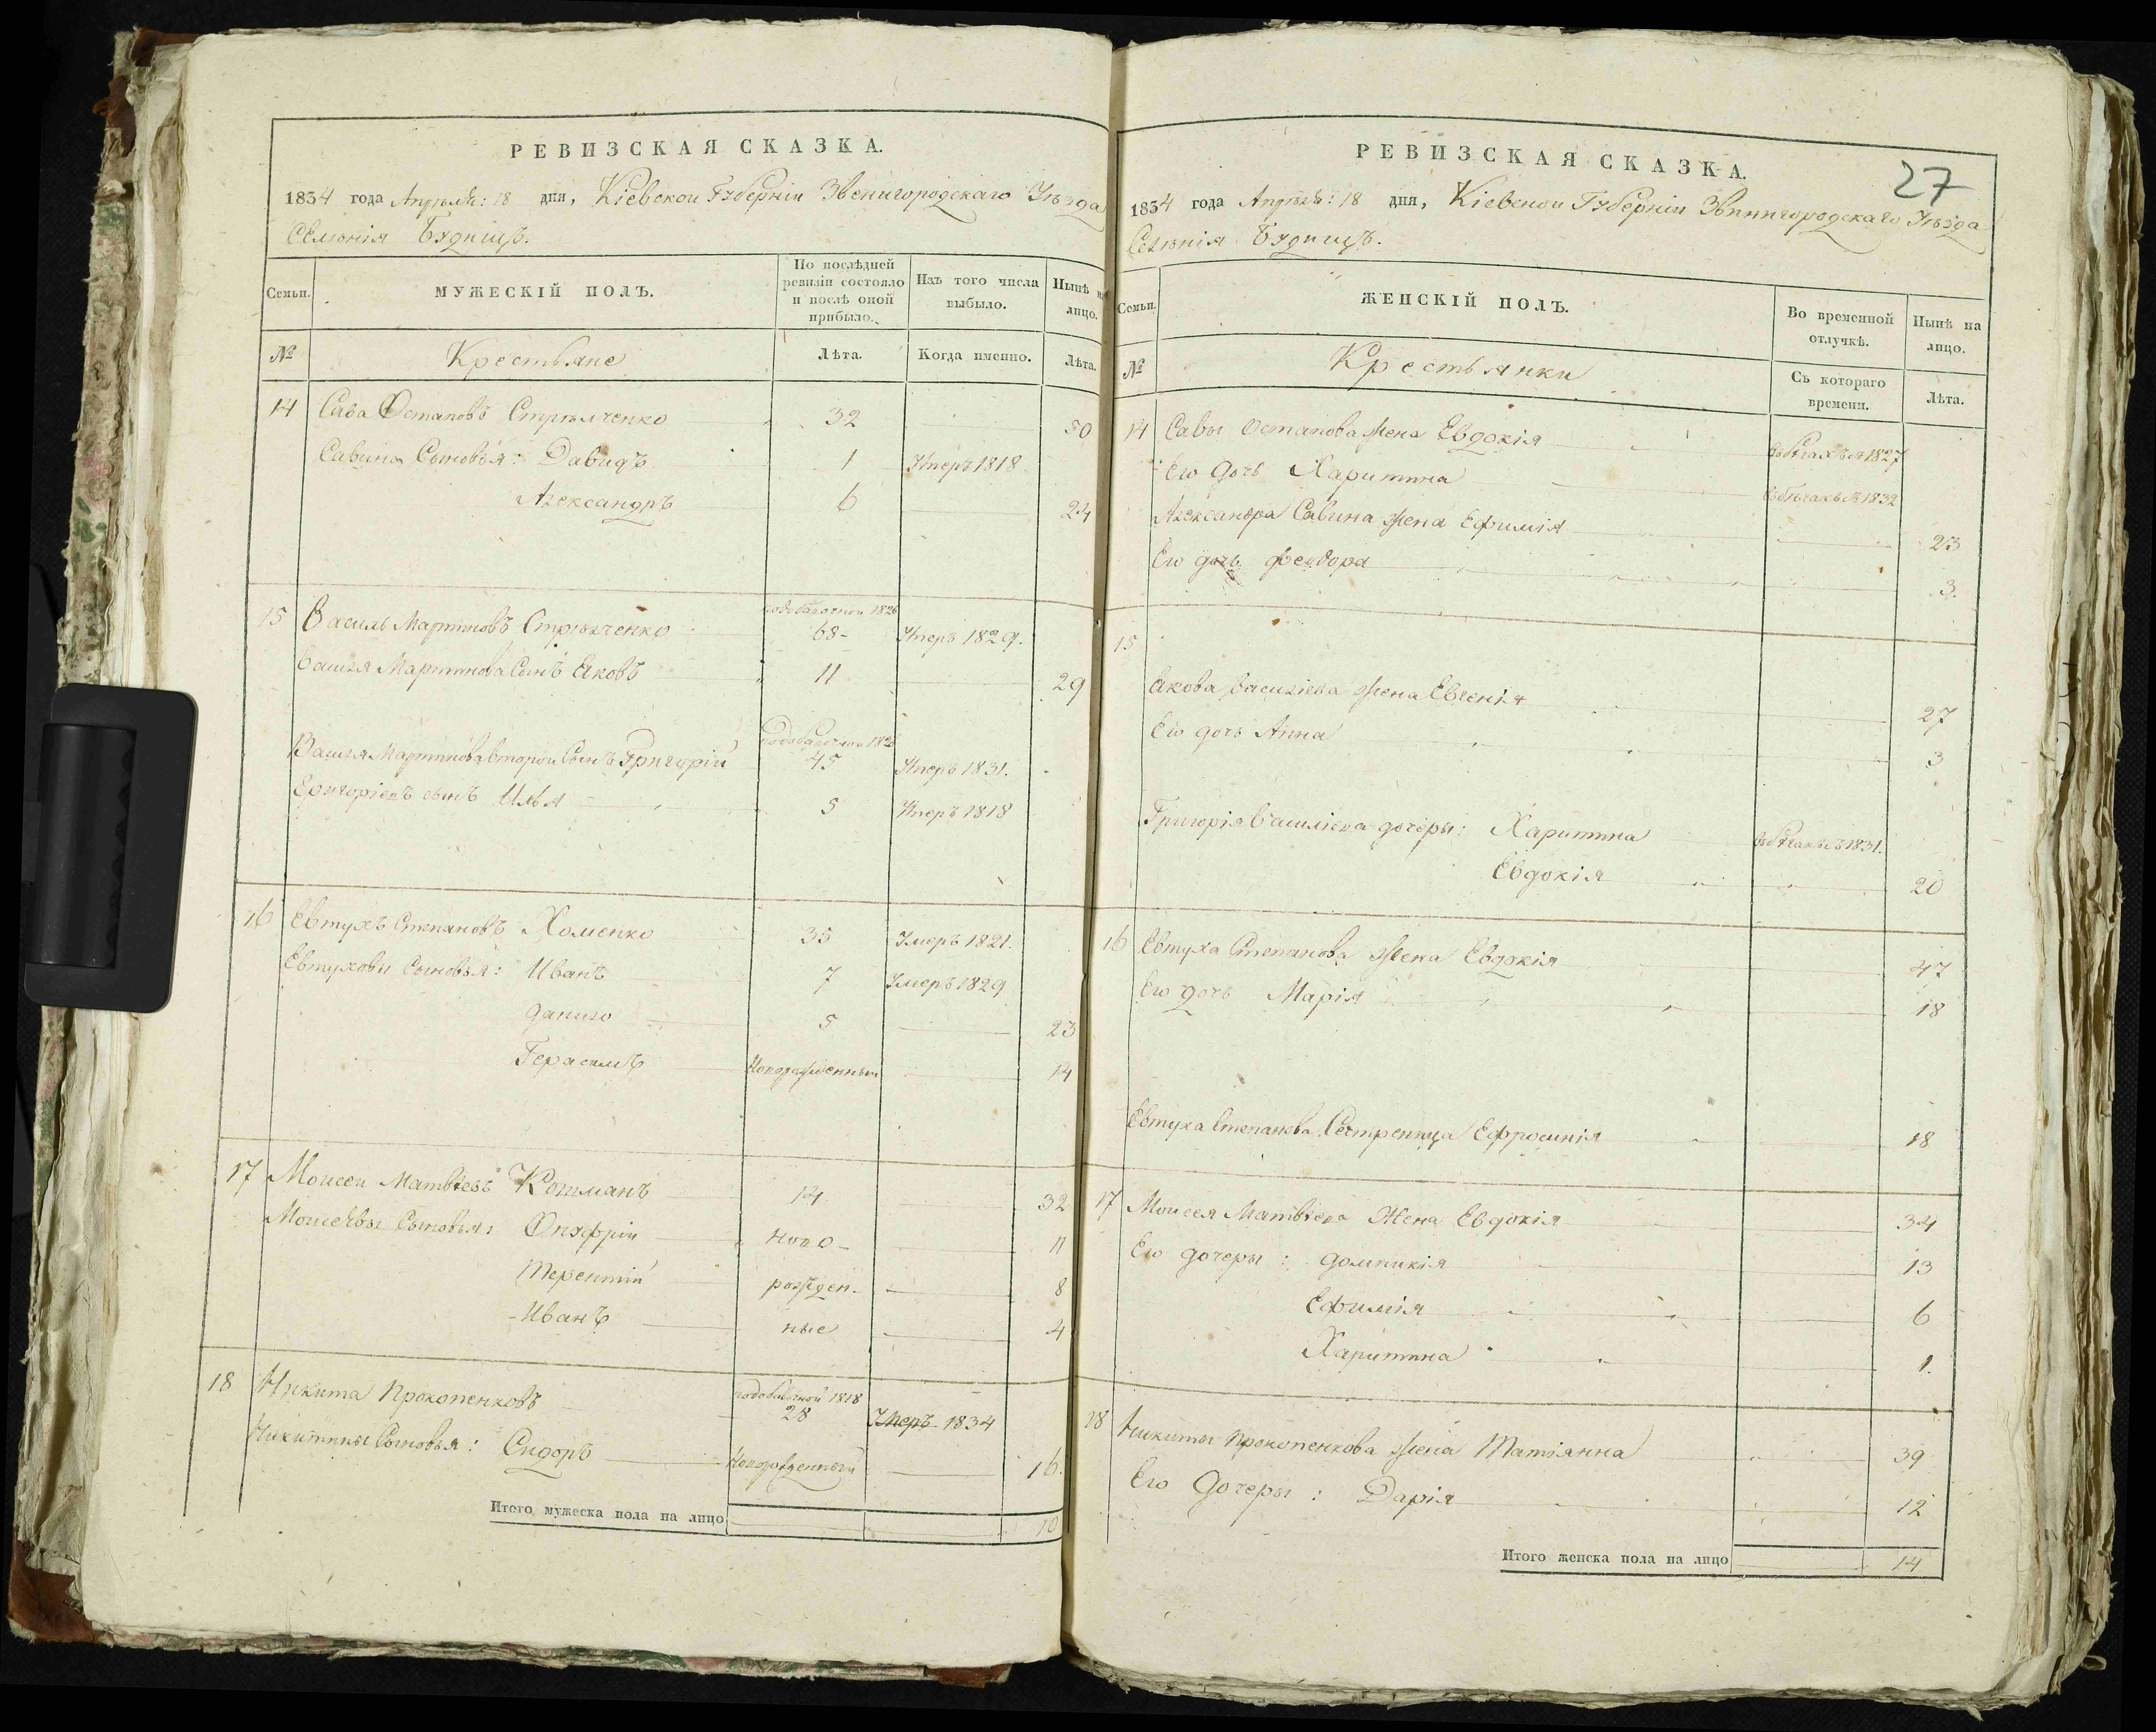 РЕВИЗСКАЯ СКАЗКА.
1834 года Апрѣля: 18 дня, Кіевской Губерніи Звенигородскаго Уѣзда
Селѣнія Будищъ.
Семьи.
МУЖЕСКІЙ ПОЛЪ.
По послѣдней ревизіи состояло и послѣ оной прибыло.
Изъ того числа выбыло.
Нынѣ на лицо.
№
Крестьяне
Лѣта.
Когда именно.
Лѣта.
14 Сава Остаповъ Стрѣлченко 32 50
Савина Сыновья: Давидъ 1 Умеръ 1818
Александръ 6 24
15 Василь Мартиновъ Стрѣлченко 68 Умеръ 1829.
Василя Мартинова Сынъ Яковъ 11 29
Василя Мартинова второй Сынъ Григорій 45 Умеръ 1831.
Григоріевъ сынъ Илья 5 Умеръ 1818
16 Евтухъ Степановъ Хоменко 35 Умеръ 1821.
Евтуховы Сыновья: Иванъ 7 Умеръ 1829
Данило 5 23
Герасимъ Новорожденный 14
17 Моисей Матвѣевъ Котманъ 14 32
Моисеевы Сыновья: Онуфрій ново- 11
Терентій рожден- 8
Иванъ ные 4
18 Никита Прокопенковъ 1818 28 Умеръ 1834
Никитины Сыновья: Сидоръ Новорожденный 16.
Итого мужеска пола на лицо 10
РЕВИЗСКАЯ СКАЗКА.
27
1834 года Апрѣля: 18 дня, Кіевской Губерніи Звинигородскаго Уѣзда
Селѣнія Будищъ.
Семьи.
ЖЕНСКІЙ ПОЛЪ.
Во временной отлучкѣ.
Нынѣ на лицо.
№
Крестьянки
Съ котораго времени.
Лѣта.
14 Савы Остапова жена Евдокія въ бѣгахъ съ 1827
Его дочь Харитина въ бѣгахъ съ 1832
Александра Савина жена Ефимія 23
Его дочь Феодора 3.
15
Якова Василіева жена Евгенія 27
Его дочь Анна 3
Григорія Василіева дочеры: Харитина въ бѣгахъ съ 1831.
Евдокія 20
16 Евтуха Степанова жена Евдокія 47
Его дочь Марія 18
Евтуха Степанова Сестренница Ефросинія 18
17 Моисея Матвѣева Жена Евдокія 34
Его дочеры: Домникія 13
Ефимія 6
Харитина 1.
18 Никиты Прокопенкова жена Татіянна 39
Его Дочеры: Дарія 12
Итого женска пола на лицо 14